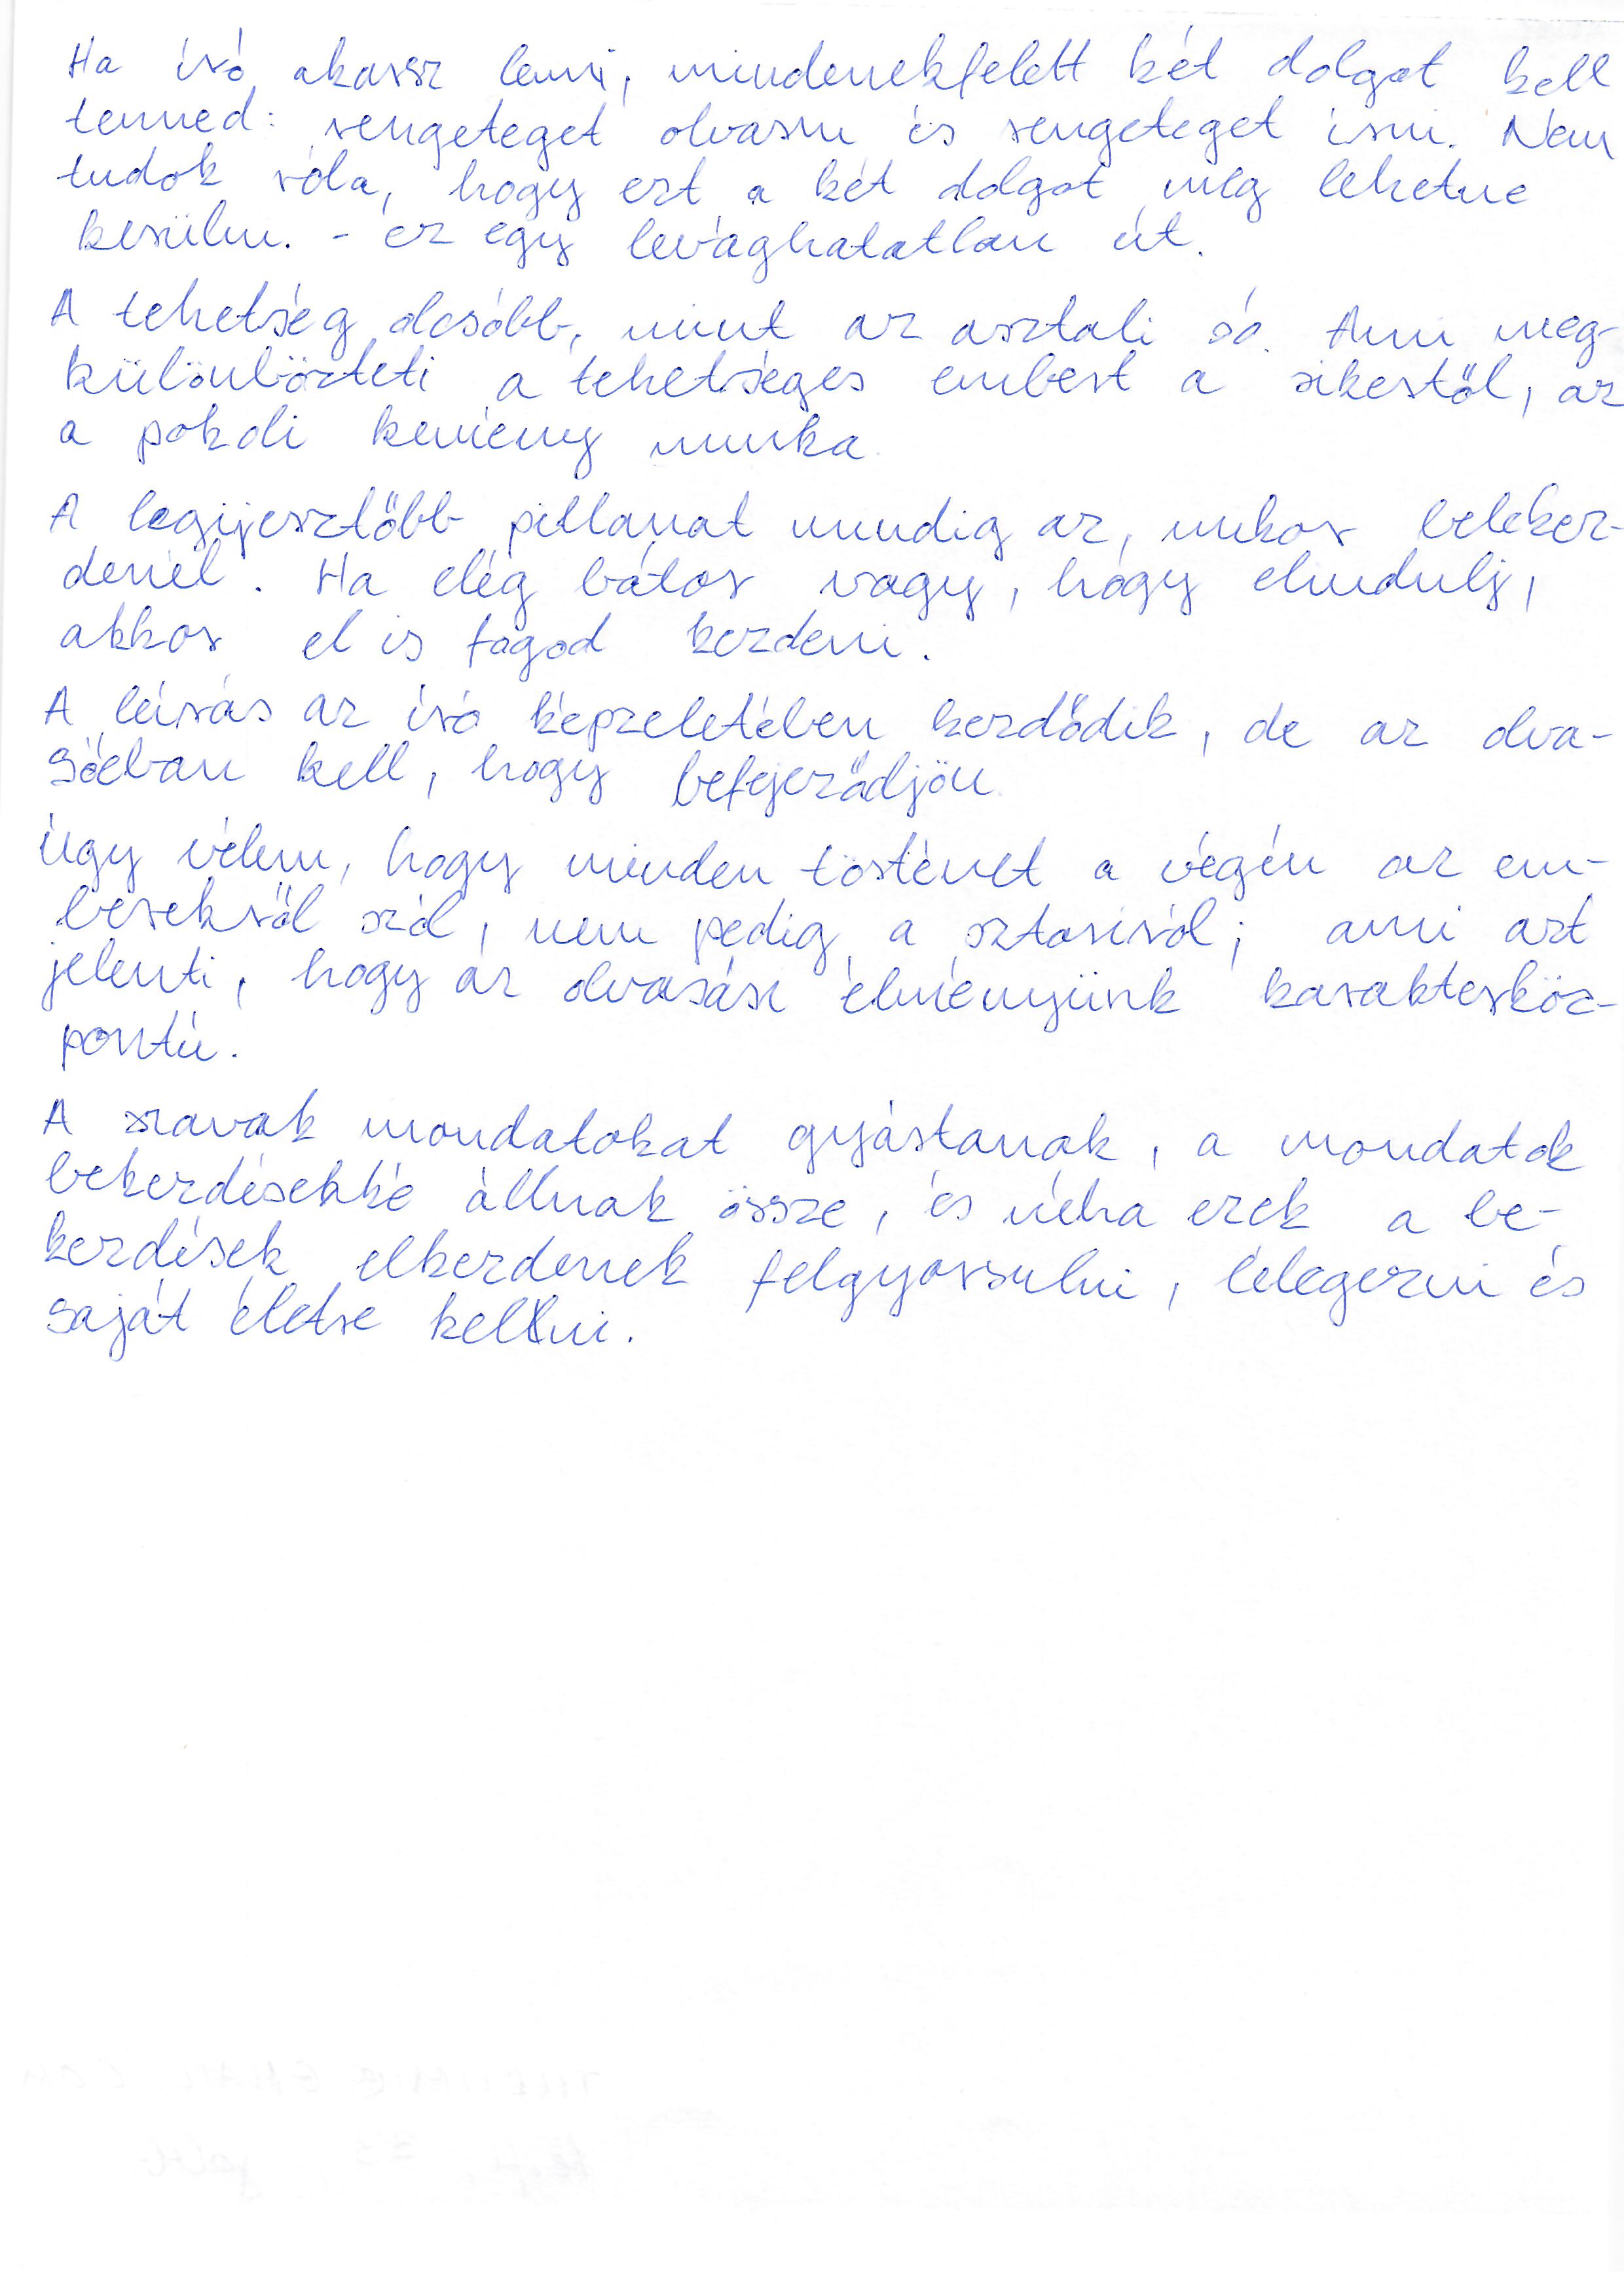 Ha író akarsz lenni, mindenekfelett két dolgot kell
tenned: rengeteget olvasni és rengeteget írni. Nem
tudok róla, hogy ezt a két dolgot meg lehetne
kerülni. - ez egy levághatatlan út.
A tehetség olcsóbb, mint az asztali só. Ami meg-
különbözteti a tehetséges embert a sikerestől, az
a pokoli kemény munka
A legijesztőbb pillanat mindig az, mikor belekez-
denél. Ha elég bátor vagy, hogy elindulj,
akkor el is fogod kezdeni.
A leírás az író képzeletében kezdődik, de az olva-
sóéban kell, hogy befejeződjön.
Úgy vélem, hogy minden történet a végén az em-
berekről szól, nem pedig a sztoriról; ami azt
jelenti, hogy az olvasási élményünk karakterköz-
pontú.
A szavak mondatokat gyártanak, a mondatok
bekezdésekké állnak össze, és néha ezek a be-
kezdések elkezdenek felgyorsulni, lélegezni és
saját életre kellni.